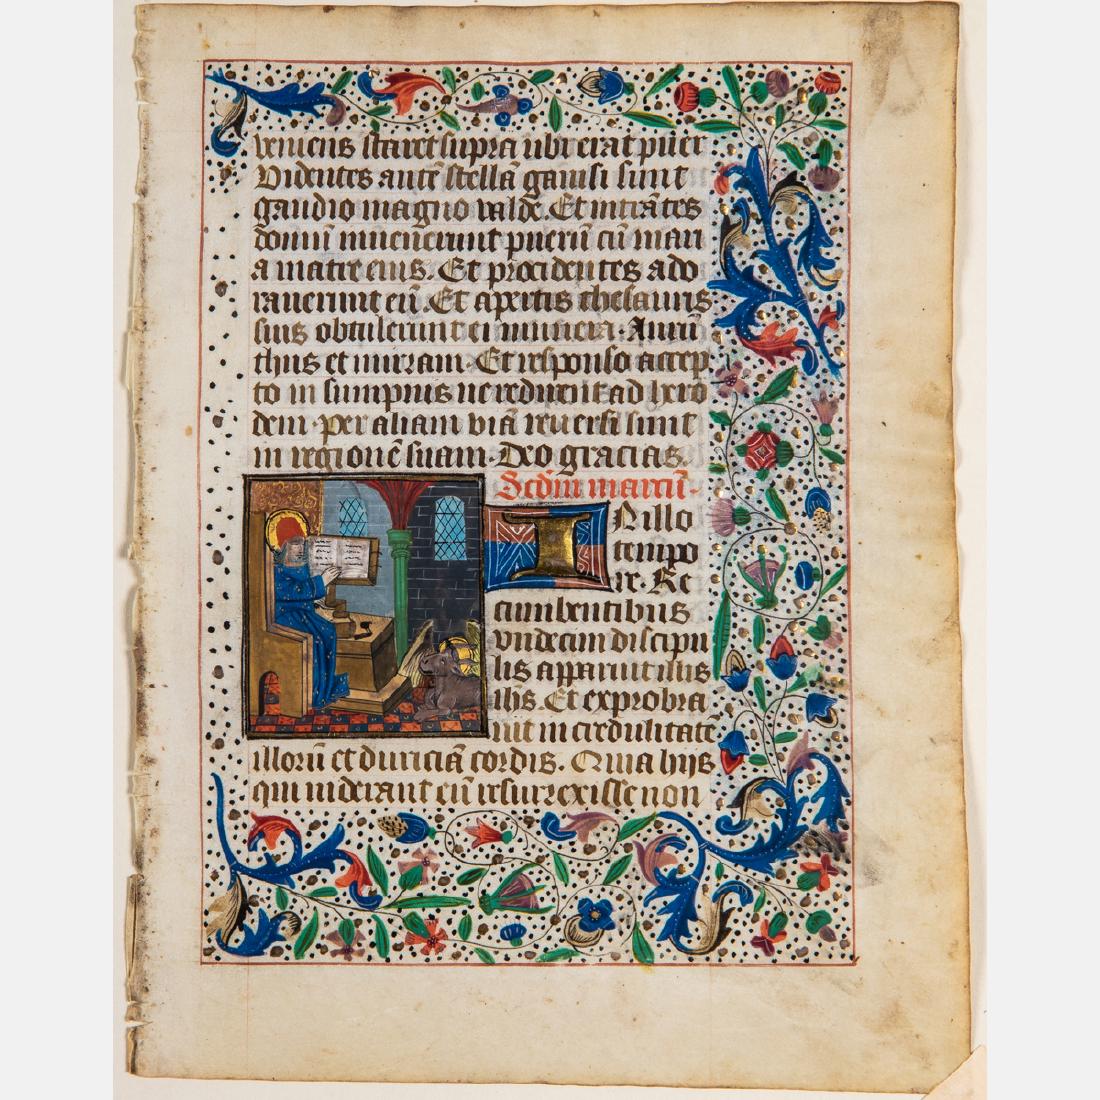 veniens staret supra ubi erat puer
Videntes autē stellā gavisi sunt
gaudio magno valde. Et intrātes
domū invenerunt puerū cū mari
a matre eius. Et procidentes ado
raverunt eū. Et apertis thesauris
suis obtulerunt ei munera. Aurū
thus et mirram. Et responso accep
to in sompnis ne redirent ad hero
dem. per aliam viā reversi sunt
in regionē suam. Deo gracias.
Scd̄m marcū.
INillo
tempo
re. Re
cumbentibus
vndecim discipu
lis apparuit illis
ihs. Et exprobra
vit incredulitatē
illorū et duriciā cordis. Quia hijs
qui viderant eū resurrexisse non